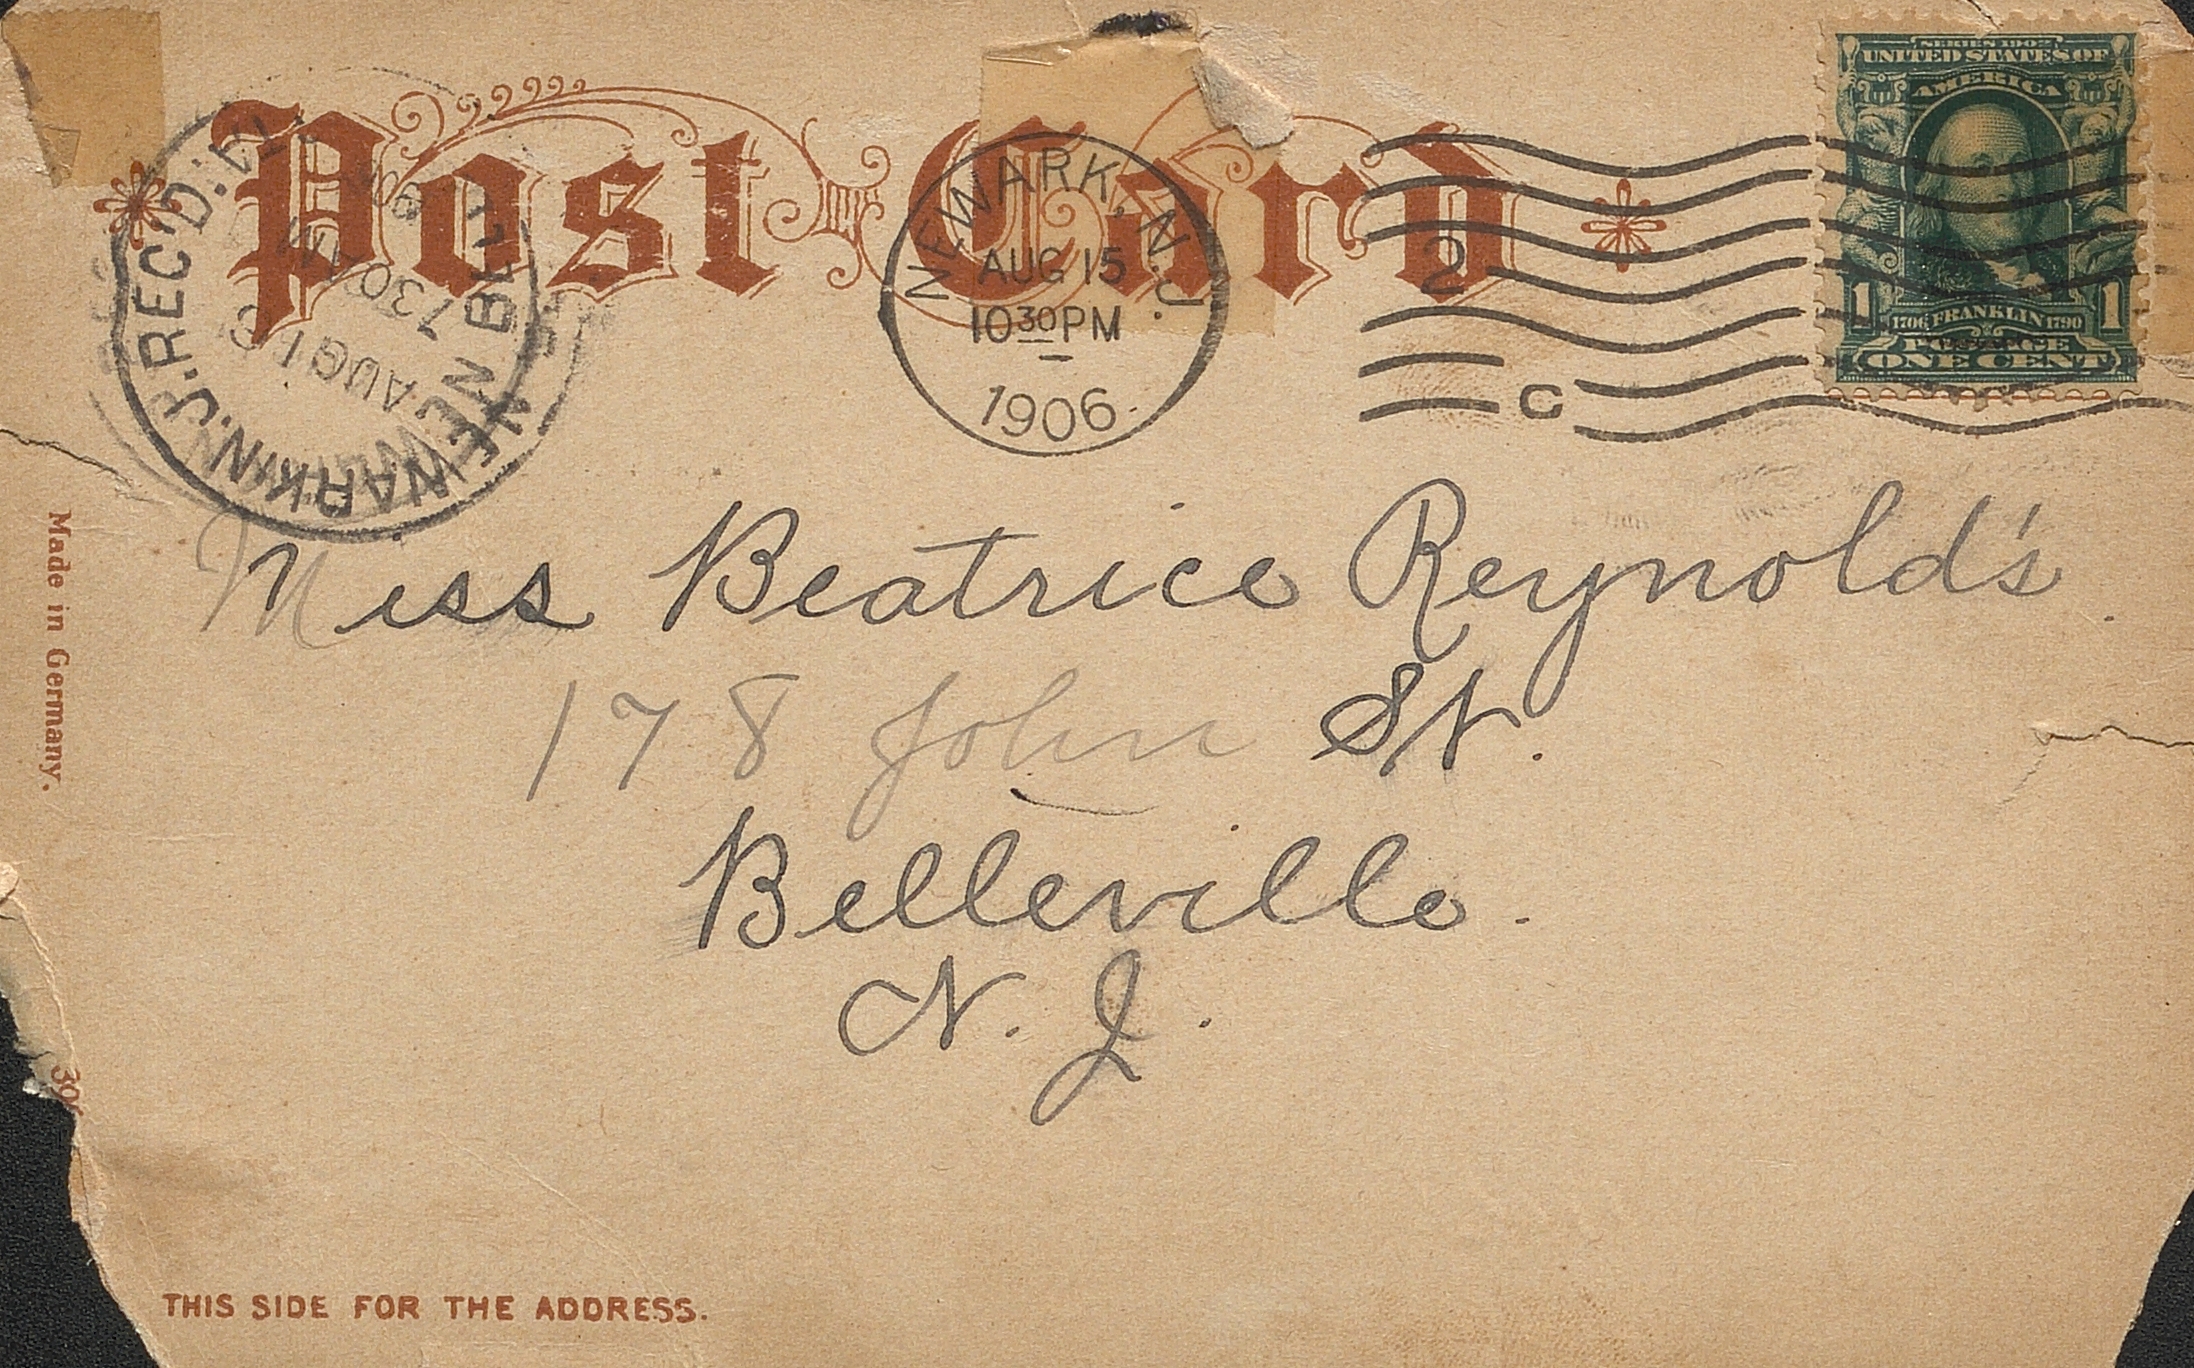 Post Card
NEWARK, N.J.
AUG 15
10 30 PM
1906
2
C
SERIES 1902
UNITED STATES OF
AMERICA
1 1706 FRANKLIN 1790 1
POSTAGE
ONE CENT
NEWARK N.J. REC'D.
AUG 16
7 30 AM
'06
Made in Germany.
Miss Beatrice Reynold's.
178 John St.
Belleville.
N. J.
THIS SIDE FOR THE ADDRESS.